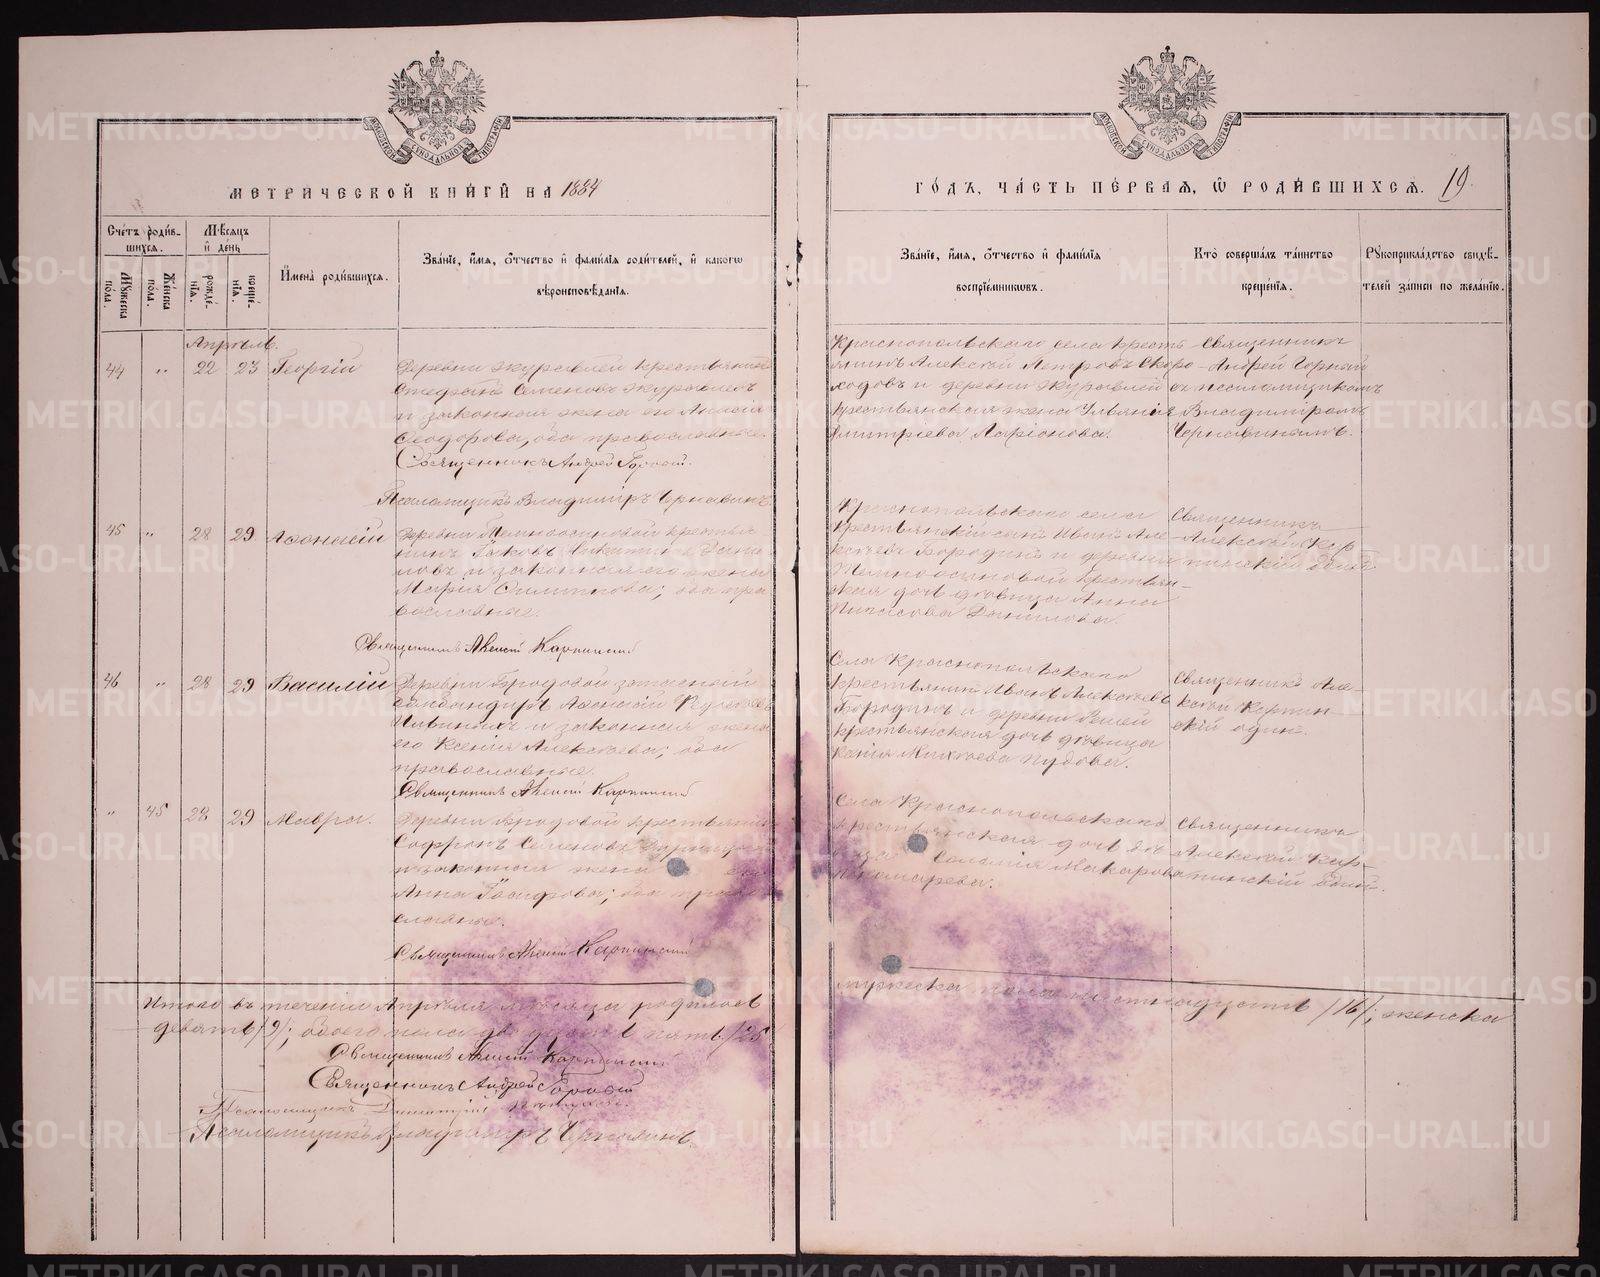 МЕТРИЧЕСКОЙ КНИГИ НА 1884
ГОДЪ, ЧАСТЬ ПЕРВАЯ, Ѡ РОДИВШИХСЯ. 19.
Счетъ родив-
шихся.
Мѣсяцъ
и день
Мужеска
пола.
Женска
пола.
рожде-
нїя.
креще-
нїя.
Имена родившихся.
Званїе, имя, отчество и фамилїя родителей, и какогѡ
вѣроисповѣданїя.
Званїе, имя, отчество и фамилїя
воспрїемниковъ.
Кто совершалъ таинство
крещенїя.
Рукоприкладство свидѣ-
телей записи по желанїю.
Апрѣль.
44 " 22 23 Георгій
Деревни Журавлей крестьянинъ
Стефанъ Семеновъ Журавлевъ
и законная жена его
Ѳеодорова, оба православные.
Священникъ Андрей Горный.
Псаломщикъ Владиміръ Чернавинъ
Краснопольскаго села кресть-
янинъ Алексѣй Петровъ Скоро-
ходовъ и деревни Журавлей
крестьянская жена Ульянія
Димитріева Ларіонова.
Священникъ
Андрей Горный
съ псаломщикомъ
Владиміромъ
Чернавинымъ.
45 " 28 29 Аѳонасій
Деревни Темноосиновой крестья-
нинъ Яковъ Дани-
ловъ и законная его жена
Марія Филиппова; оба пра-
вославные.
Священникъ Алексій Карпинскій
Краснопольскаго села
крестьянскій сынъ Иванъ Але-
ксѣевъ Бородинъ и деревни
Темноосиновой крестьян-
ская дочь дѣвица Анна
Данилова.
Священникъ
Алексѣй Кар-
пинскій одинъ.
46 " 28 29 Василій
Деревни Бродовой запасный
Аѳонасій
и законная жена
его Ксенія Алексѣева; оба
православные.
Священникъ Алексій Карпинскій
Села Краснопольскаго
крестьянинъ Иванъ Алексѣевъ
Бородинъ и деревни
крестьянская дочь дѣвица
Ксенія Пудова.
Священникъ Але-
ксѣй Карпин-
скій одинъ.
" 45 28 29 Мавра.
Деревни Бродовой крестьянинъ
Софронъ Семеновъ
и законная жена его
Анна; оба право-
славные.
Священникъ Алексій Карпинскій
Села Краснопольскаго
крестьянская дочь дѣ-
вица Соломія Макарова
Пономарева.
Священникъ
Алексѣй Кар-
пинскій одинъ.
Итого въ теченіи Апрѣля мѣсяца родилось
мужеска пола шестнадцать /16/; женска
девять /9/; обоего пола двадцать пять /25
Священникъ Алексій Карпинскій
Священникъ Андрей Горный
Псаломщикъ Димитрій
Псаломщикъ Владиміръ Чернавинъ.
METRIKI.GASO-URAL.RU